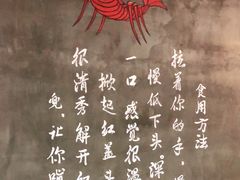 食用方法
挂着你的手，
慢低下头。深
一口感觉很温
掀起红盖头
很清秀解开
兜，让你